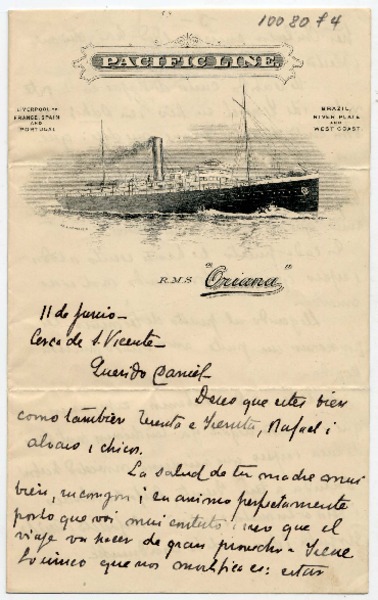 10080 f4
PACIFIC LINE
LIVERPOOL TO
FRANCE, SPAIN
AND
PORTUGAL
BRAZIL,
RIVER PLATE
AND
WEST COAST.
R.M.S. "Oriana"
11 de Junio-
Cerca de S. Vicente-
Querido Daniel-
Deseo que estes bien
como tambien e Irenita, Rafael i
alvaro i chicos.
La salud de tu madre mui
bien, su corazon i su animo perfectamente
por lo que voi mui contento i creo que el
viaje va hacer de gran provecho a Irene
Lo unico que nos mortifica es: estar